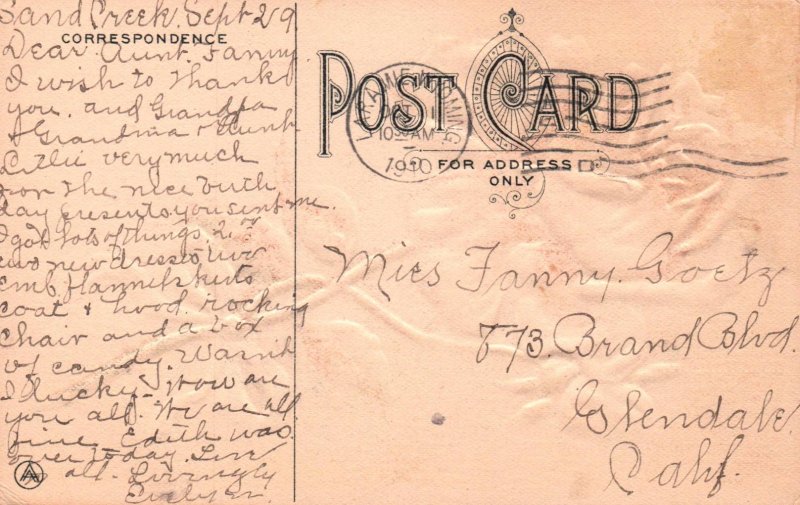 Sand Creek. Sept 29
CORRESPONDENCE
Dear Aunt. Fanny
I wish to thank
you. and Grandpa
& Grandma & Aunt
very much
for the nice birth
day presents you sent me.
I got lots of things.
two new dresses two
emb. flannel skirts
coat & hood. rocking
chair and a box
of candy. Wasn't
I lucky. How are
you all. We are all
fine. Edith was
over today. Love
to all. Lovingly
Evelyn.
POST CARD
WYOMING
10 AM
1910
FOR ADDRESS
ONLY
Miss Fanny. Goetz
873. Brand Blvd.
Glendale.
Calif.